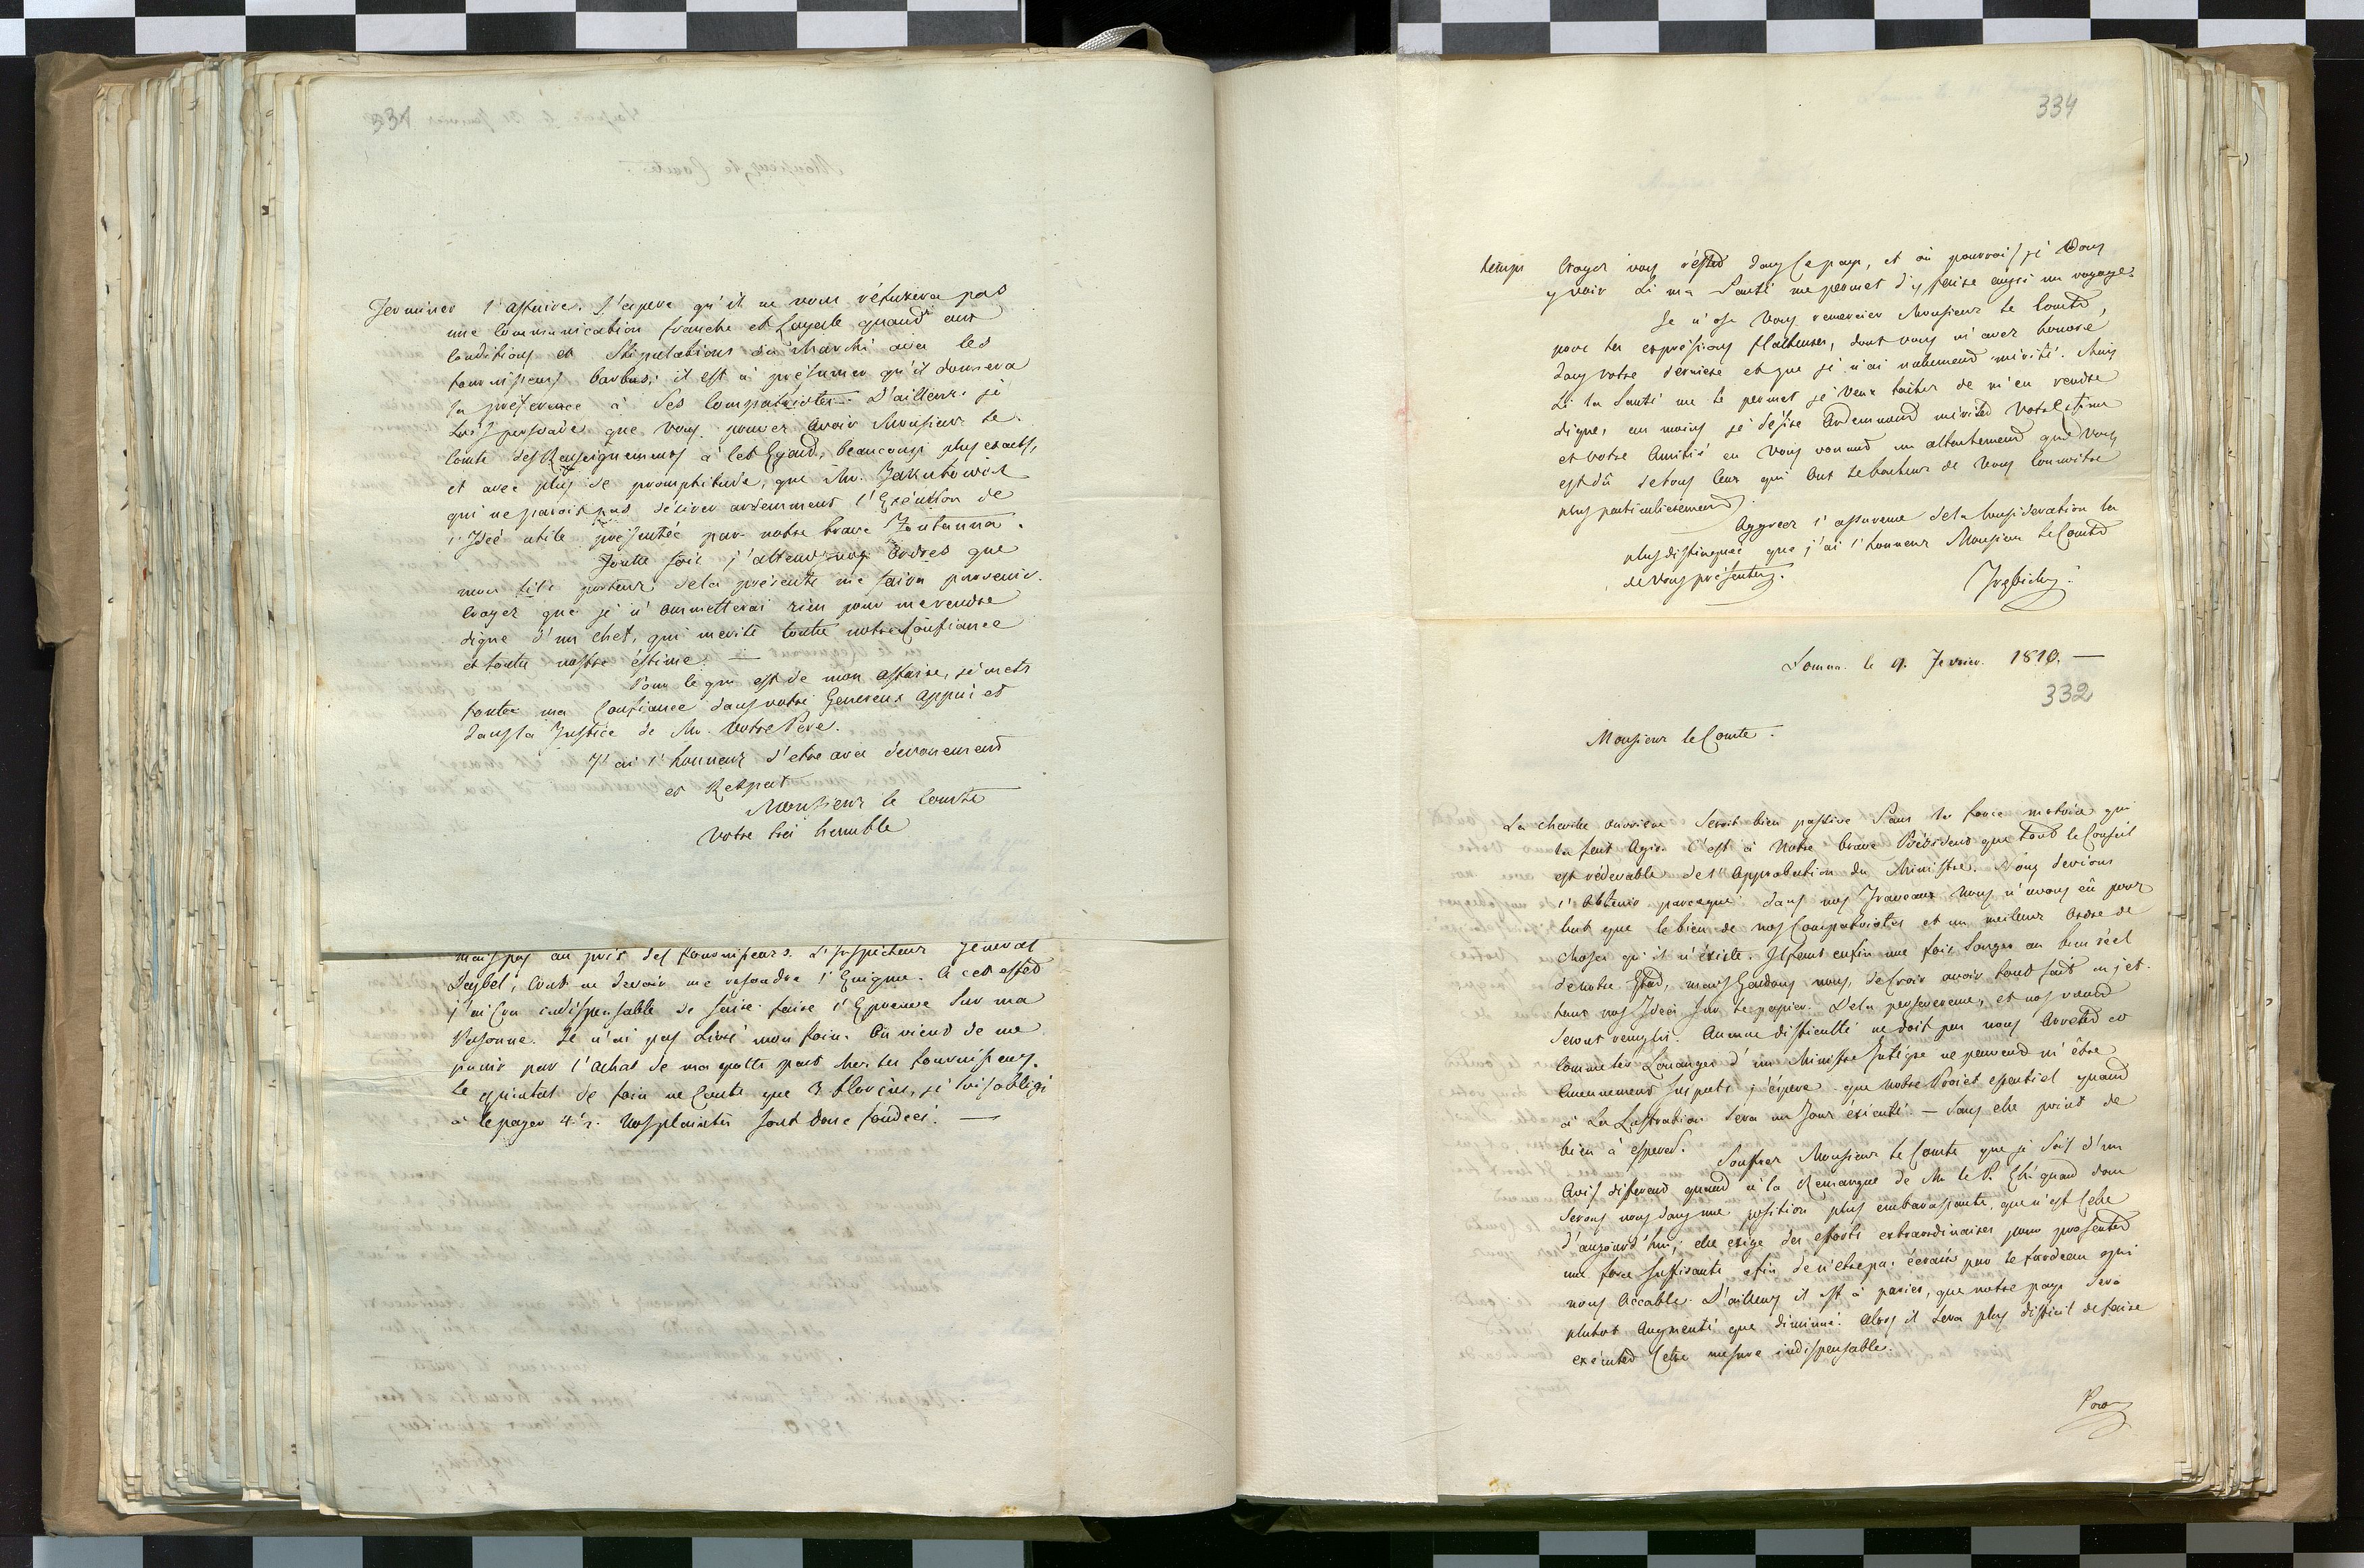 331
Terminer l'affaire. J'espere qu'il ne vous réfusera pas
une Communication franche et Loyale quand aux
Conditions et Stipulations du Marché avec les
fournisseurs barbus; il est à présumer qu'il donnera
la préference à Ses Compatriotes. D'ailleurs je
suis persuadé que Vous pouvez avoir Monsieur le
Comte des Renseignements à cet Egard, beaucoup plus exacts,
et avec plus de promptitude, que Mr. Jakubowicz
qui ne parait pas désirer ardemment l'Exécution de
l'Idée utile présentée par notre brave Fontanna.
Toute fois j'attends vos Ordres que
mon fils porteur de la présente me faira parvenir.
Croyez que je n'ommetterai rien pour me rendre
digne d'un Chef, qui merite toute notre Confiance
et toute nostre éstime. —
Pour ce qui est de mon affaire, je mets
toute ma Confiance dans votre Genereux Appui et
dans la Justice de Mr. Votre Pere.
J'ai l'honneur d'etre avec devouement
et Respect
Monsieur le Comte
Votre trés humble
mais pas au prix des fournisseurs. L'Inspecteur General
Deybel, Crut ne devoir me resoudre l'Enigme. A cet effet
j'ai Cru indispensable de faire faire l'Epreuve Sur ma
Persone. Je n'ai pas Livré mon foin. On vient de me
punir par l'achat de ma quotte part chez les fournisseurs.
le quintal de foin ne Coute que 3 florins, je suis obligé
à le payer 4½. Nos plaintes sont donc fondées. —
334
temps Croyez vous réster dans ce pays, et où pourrois-je Vous
y voir Si ma Santé me permet d'y faire aussi un voyage.
Je n'ose Vous remercier Monsieur le Comte,
pour les expréssions flatteuses, dont vous m'avez honoré
dans votre derniere et que je n'ai nulement mérité. Mais
Si la Santé me le permet je Veux tacher de m'en rendre
digne, au moins je désire Ardemment mériter Votre Estime
et votre Amitié en Vous vouant un attachement que Vous
est dû de tous Ceux qui Ont le bonheur de Vous Connoitre
plus particulierement.
Aggreez l'assurance de la Consideration la
plus distinguée que j'ai l'honneur Monsieur le Comte
de Vous présenter.
Lomna. le 9. Fevrier. 1810. —
332
Monsieur le Comte.
La cheville ouvriere Seroit bien passive Sans la force motrice qui
la fait Agir. C'est à Notre brave Président que tout le Conseil
est rédevable de l'Approbation du Ministre. Nous devions
l'Obtenir parceque dans nos Travaux Nous n'avons eû pour
but que le bien de nos Compatriotes et un meilleur Ordre de
choses qu'il n'éxiste. Il faut enfin une fois Songer au bien réel
de notre Etat, mais Gardons nous, de Croir avoir tout fait en jet-
tant nos Idées Sur le papier. De la perseverence, et nos voeux
Seront remplis. Aucune difficulté ne doit pas nous Arreter et
Comme les Louanges d'un Ministre Intégre ne peuvent m'être
Aucunement Suspects j'éspere que Notre Projet essentiel quand
à La Lustration Sera un Jour éxécuté — Sans elle point de
bien à ésperer.
Souffrez Monsieur le Comte que je Sois d'un
Avis different quand à la Remarque de Mr. le P. Ch: quand donc
Serons nous dans une position plus embarassante, que n'est Celle
d'aujourd'hui; elle exige des efforts extraordinaires pour presenter
une force Suffisante afin de n'etre pas écrasés par le fardeau qui
nous Accable. D'ailleurs il est à parier, que notre pays Sera
plutot Augmenté que diminué. Alors il Sera plus difficil de faire
exécuter Cette mesure indispensable.